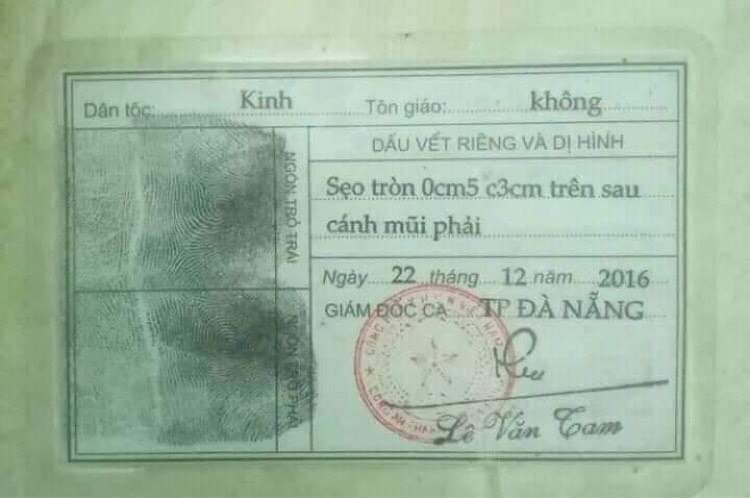 Dân tộc: Kinh Tôn giáo: không
NGÓN TRỎ TRÁI
DẤU VẾT RIÊNG VÀ DỊ HÌNH
Sẹo tròn 0cm5 c3cm trên sau
cánh mũi phải
Ngày 22 tháng 12 năm 2016
NGÓN TRỎ PHẢI
GIÁM ĐỐC CA TP ĐÀ NẴNG
Lê Văn Tam